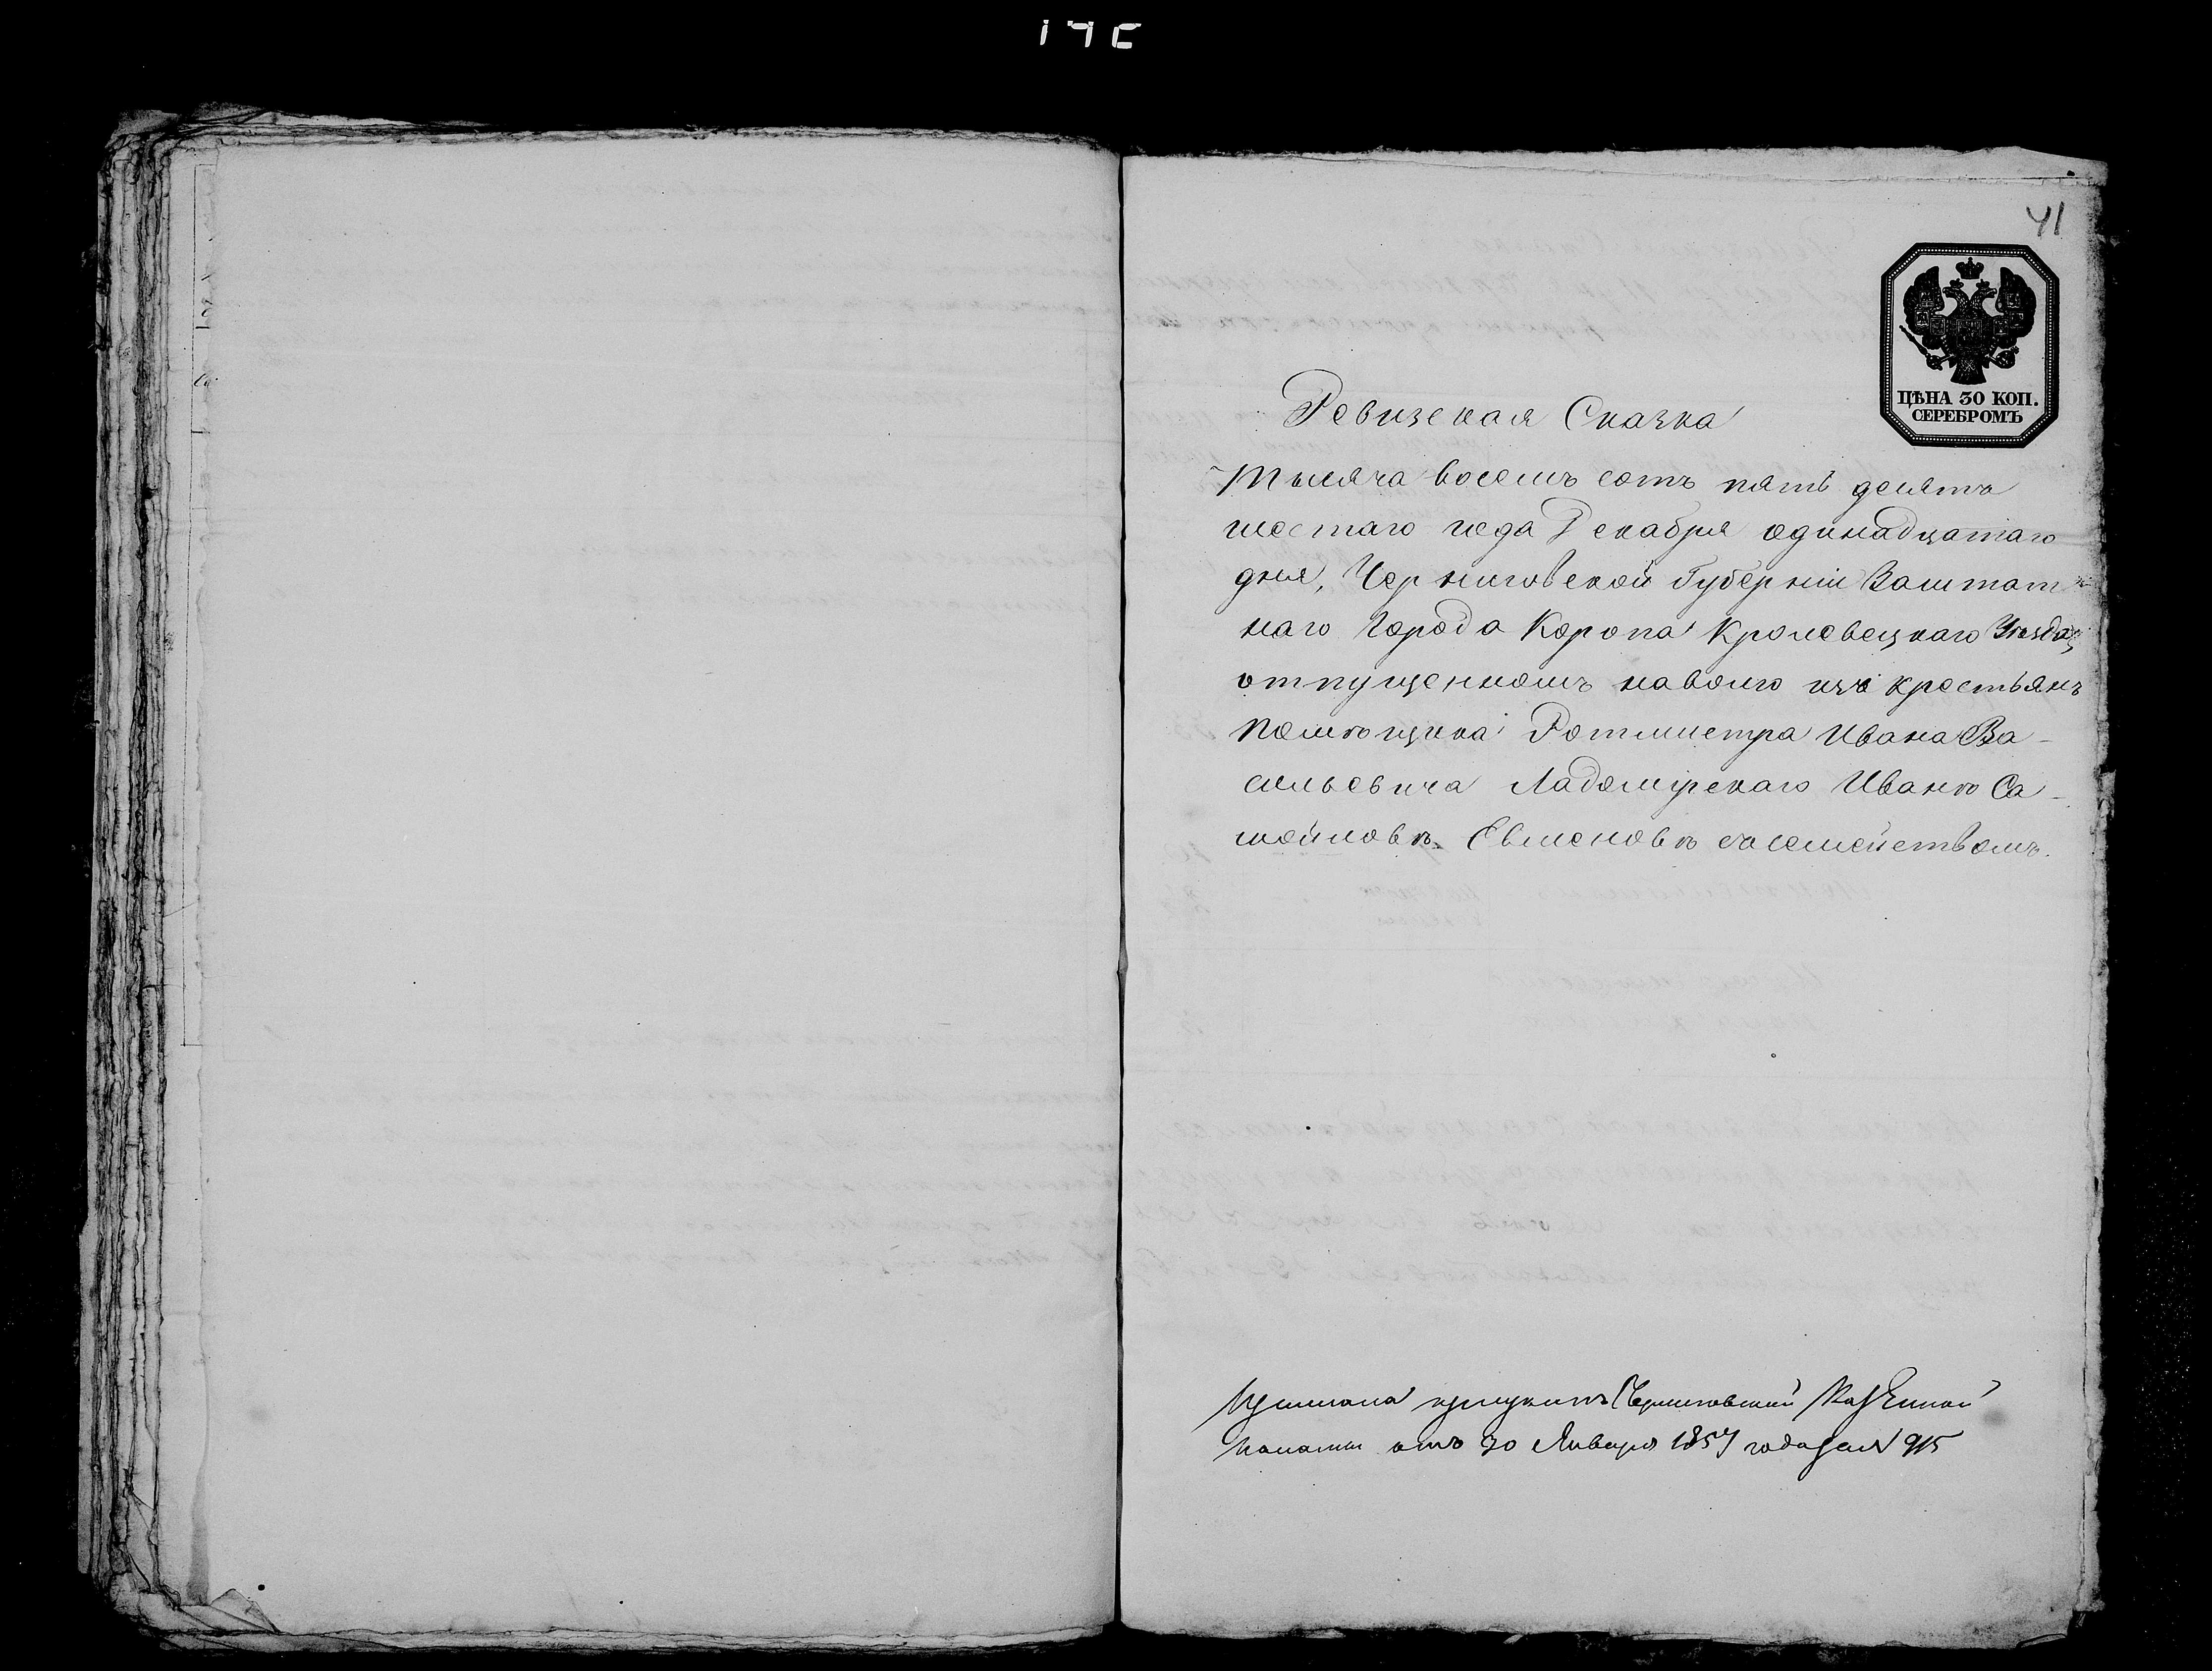 41
ЦѢНА 30 КОП.
СЕРЕБРОМЪ
Ревизская Сказка
Тысяча восемь сотъ пять десятъ
шестаго года Декабря одинадцатаго
дня, Черниговской Губерніи Заштат
наго Города Коропа Кролевецкаго Уезда,
отпущенномъ наволю изъ крестьянъ
помѣщика Ротмистра Ивана Ва-
сильевича Ладомірскаго Иванѣ Са-
мойловѣ Евменовѣ съ семействомъ.
Черниговской Казенной
палаты отъ 30 Января 1857 года за № 915